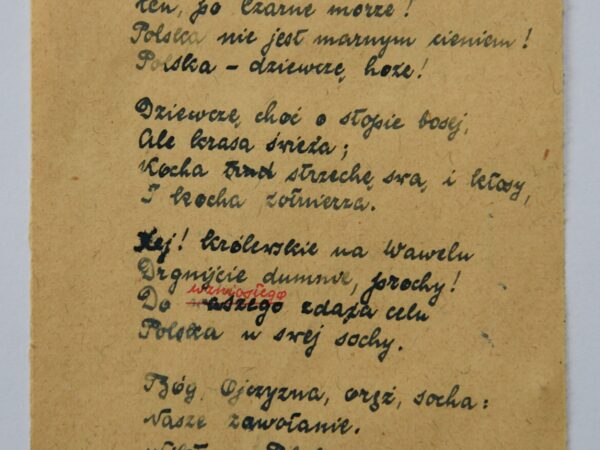 ten, po Czarne morze!
Polska nie jest marnym cieniem!
Polska - dziewczę hoże!
Dziewczę, choć o stopie bosej,
Ale krasa świeża;
Kocha trud strzechę swą, i kłosy,
I kocha żołnierza.
Hej! królewskie na Wawelu
Drgnijcie dumnie, prochy!
wzniosłego
Do naszego zdąża celu
Polska u swej sochy.
Bóg, Ojczyzna, oręż, socha:
Nasze zawołanie.